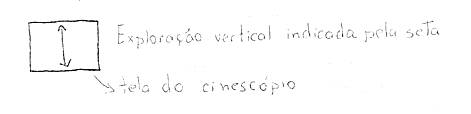 Exploração vertical indicada pela seta
tela do cinescópio